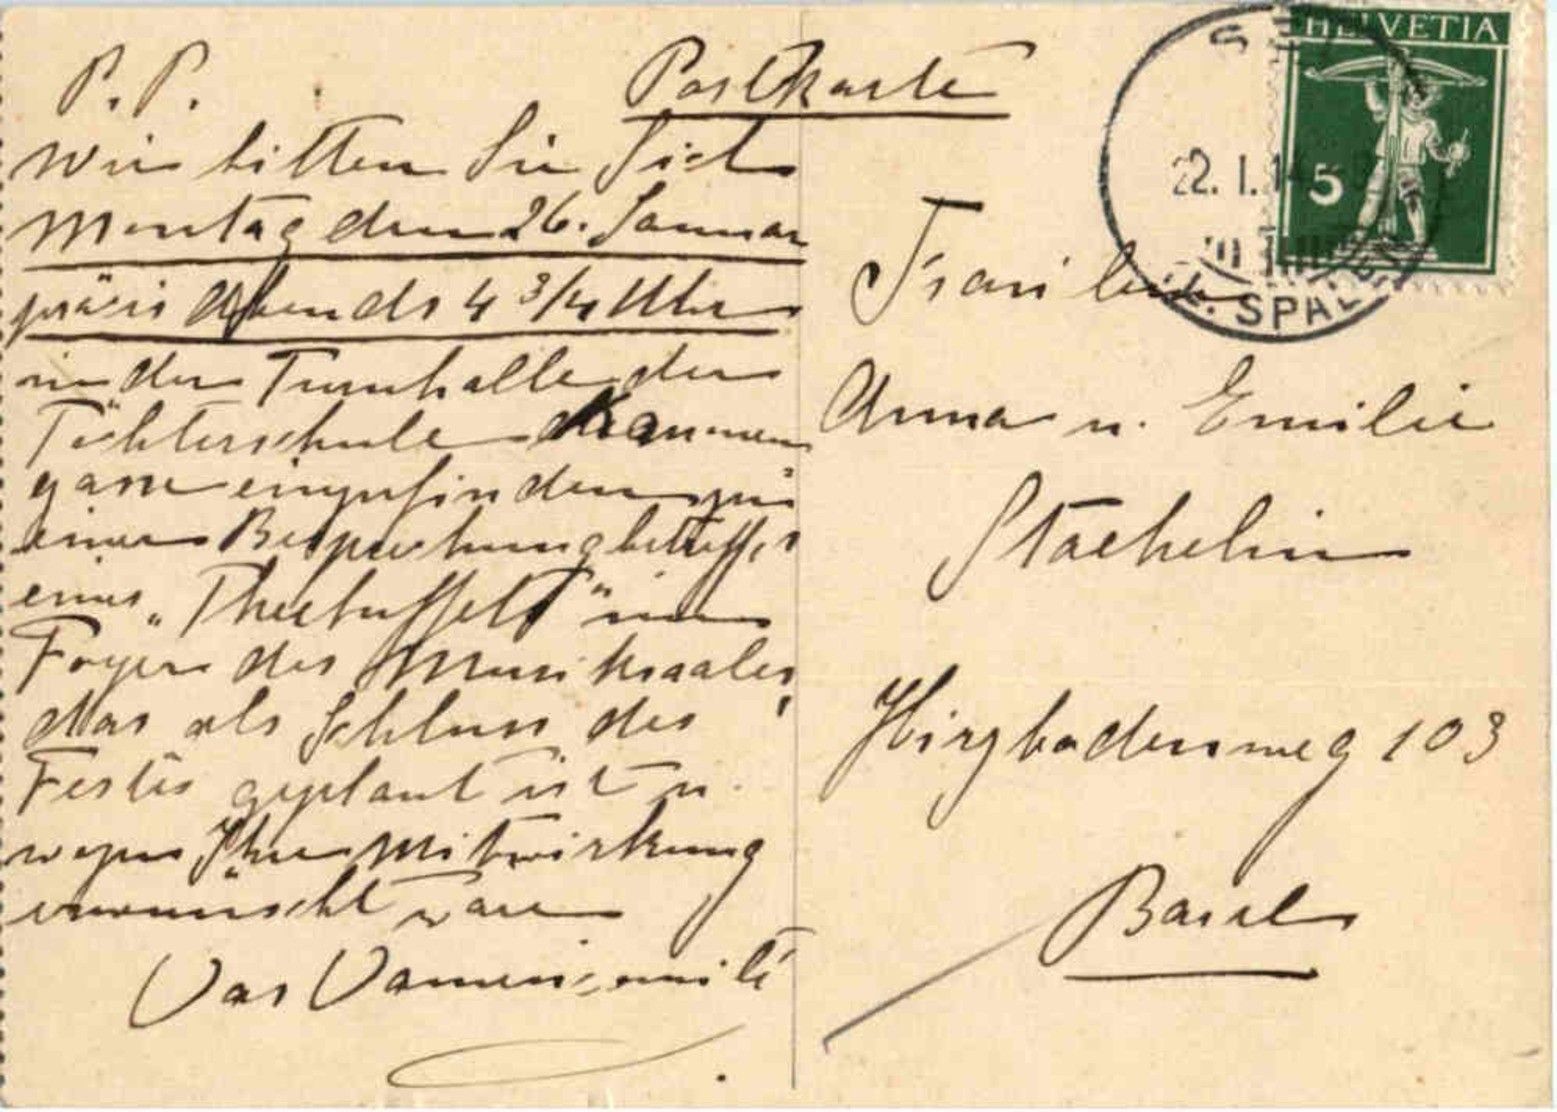 P. P.
Wir bitten Sie sich
Montag den 26. Januar
präcis Abends 4 3/4 Uhr
in der Turnhalle der
Töchterschule Kanonen
gasse einzufinden zu
einer Besprechung betreffs
eines „Theebuffets" im
Foyer des Musiksaales,
das als Schluss des
Festes geplant ist u.
wozu Ihre Mitwirkung
erwünscht wäre
Das Damencomité
Postkarte
HELVETIA
5
22. I. 14
SPAL
Fräulein
Anna u. Emilie
Staehelin
Hirzbodenweg 103
Basel